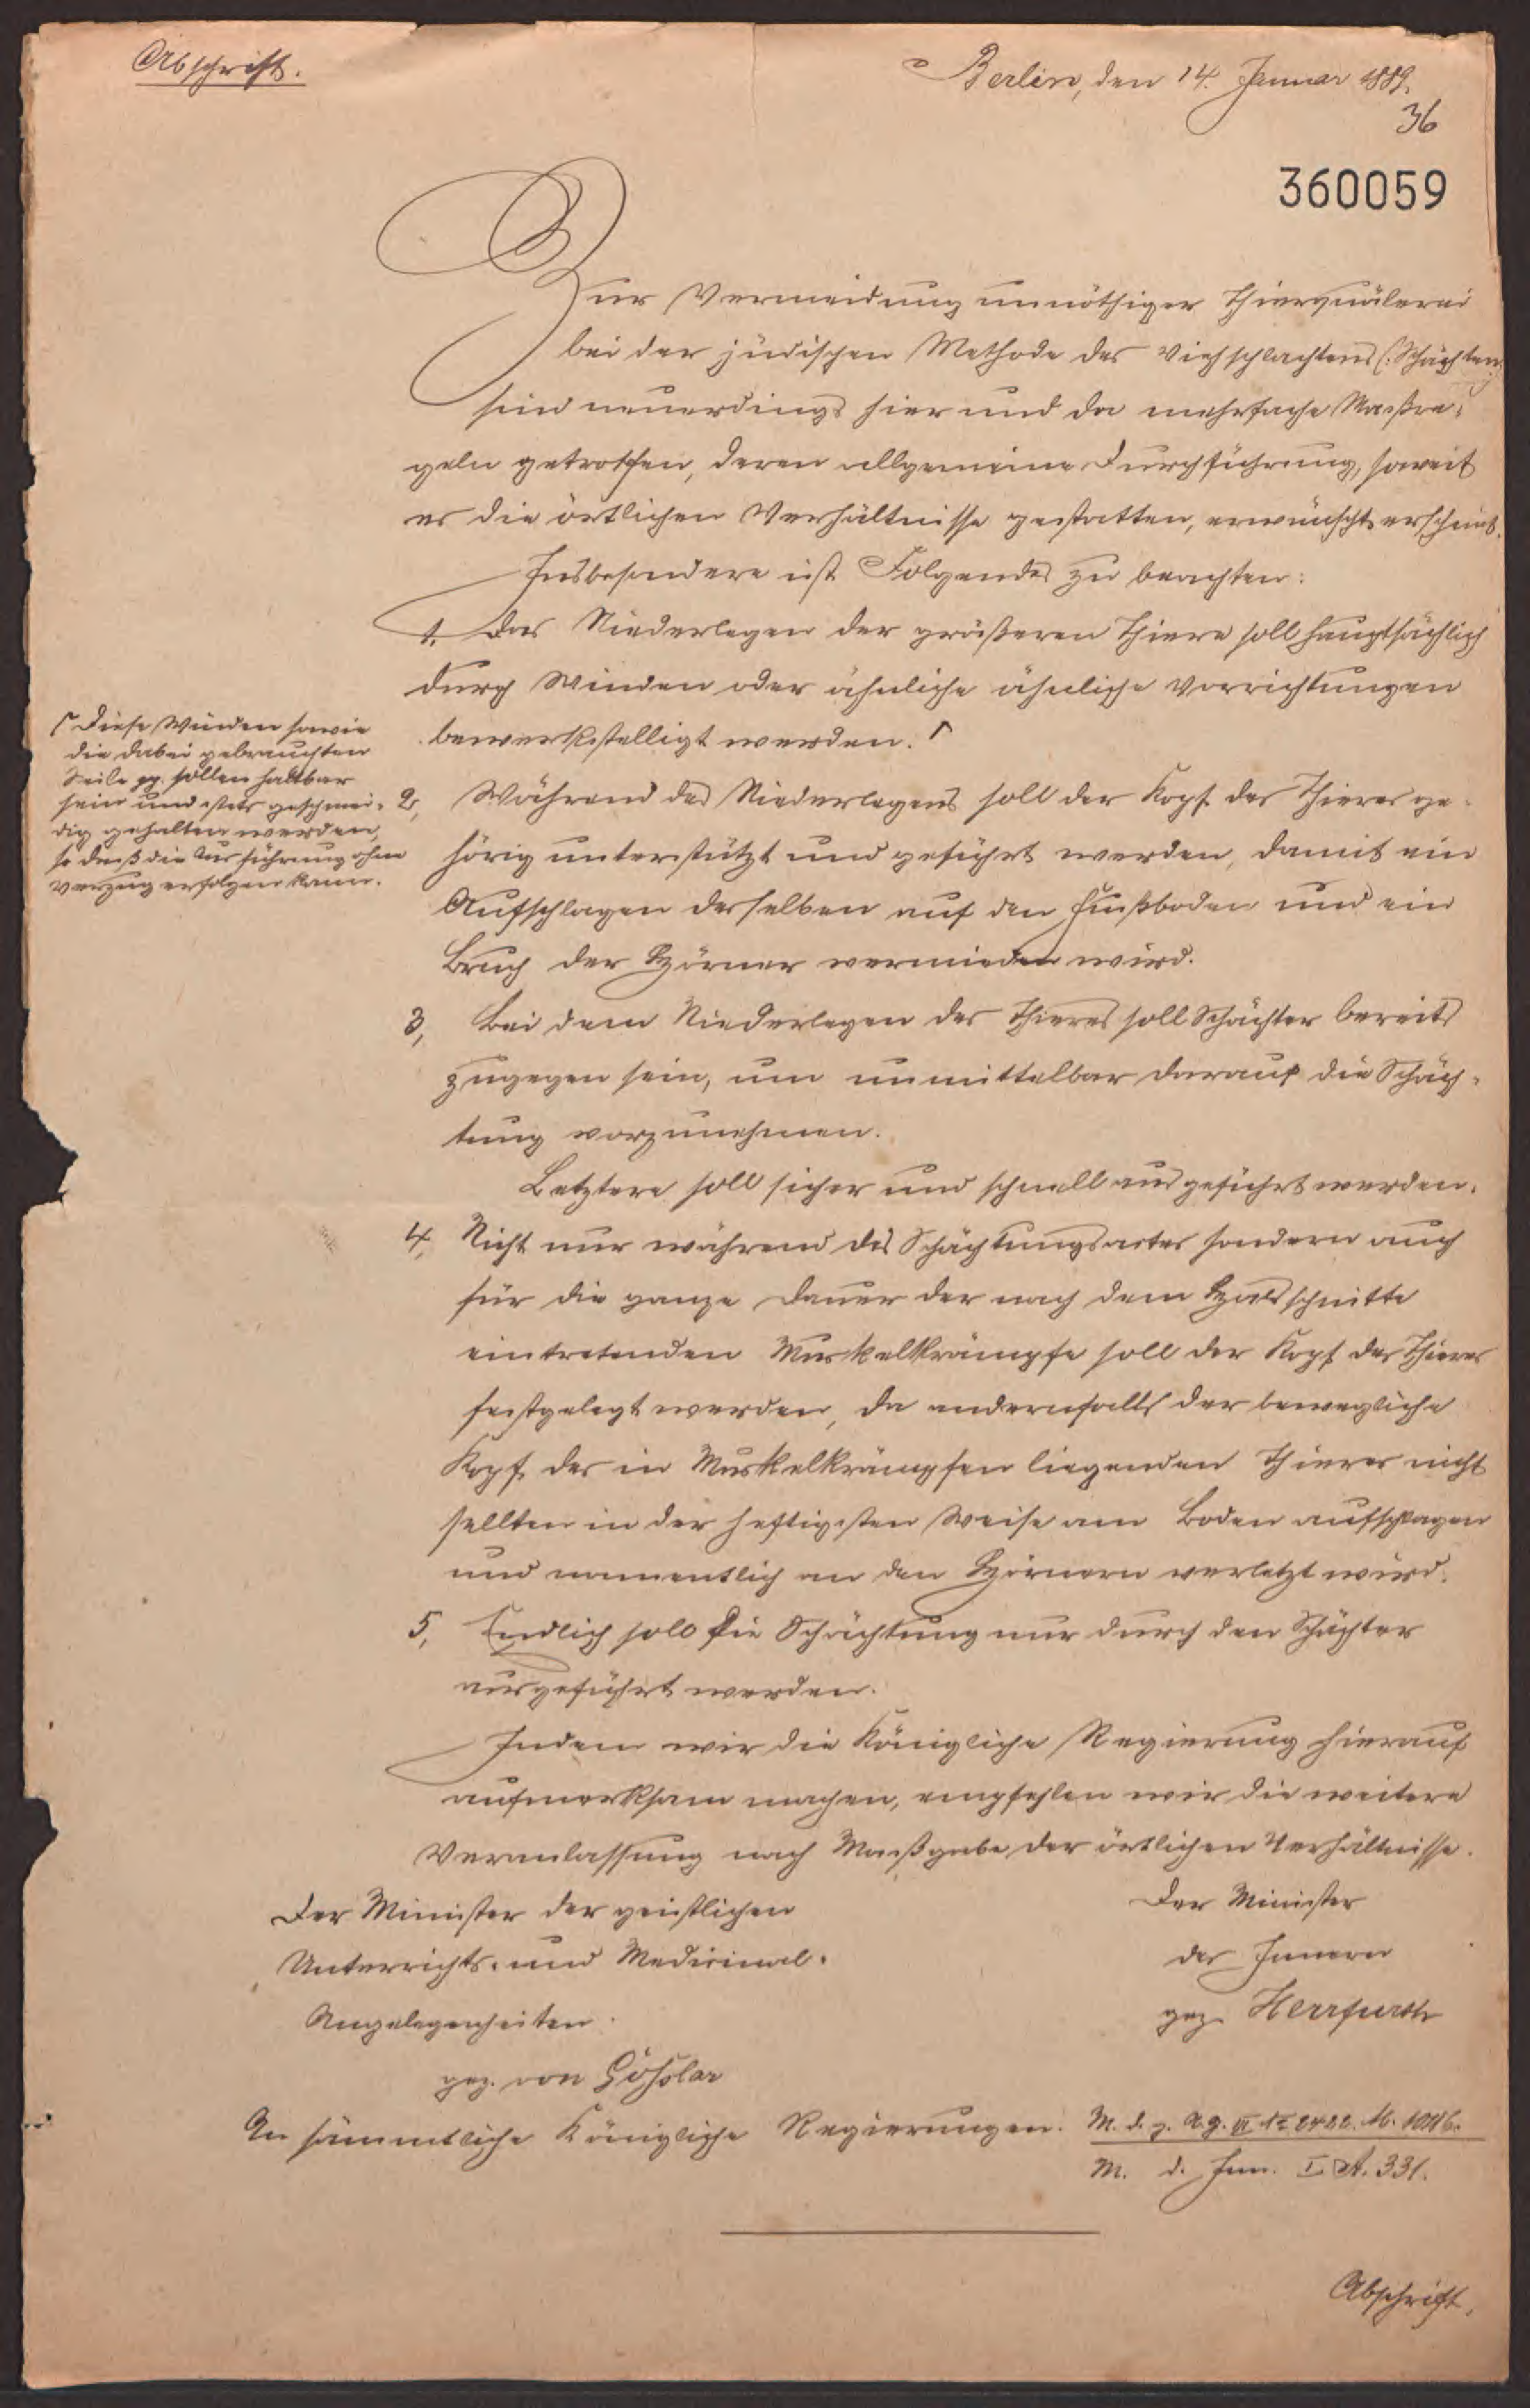 Abschrift.
Berlin, den 14. Januar 1889.
36
360059
Zur Vermeidung unnöthiger Thierquälerei
bei der jüdischen Methode des Viehschlachtens (: Schächten:)
sind neuerdings hier und da mehrfache Maßre-
geln getroffen, deren allgemeine Durchführung, soweit
es die örtlichen Verhältnisse gestatten, erwünscht erscheint.
Insbesondere ist Folgendes zu beachten:
1. Das Niederlegen der größeren Thiere soll hauptsächlich
durch Winden oder ähnliche ähnliche Vorrichtungen
bewerkstelligt werden. ┌
┌ Diese Winden sowie
die dabei gebrauchten
Seile pp. sollen haltbar
sein und stets geschmei-
dig gehalten werden,
so daß die Ausführung ohne
Verzug erfolgen kann.
2, Während des Niederlegens soll der Kopf des Thieres ge-
hörig unterstützt und geführt werden, damit ein
Aufschlagen desselben auf den Fußboden und ein
Bruch der Hörner vermieden wird.
3, Bei dem Niederlegen des Thieres soll Schächter bereits
zugegen sein, um unmittelbar darauf die Schäch-
tung vorzunehmen.
Letztere soll sicher und schnell ausgeführt werden.
4, Nicht nur während des Schächtungsactes sondern auch
für die ganze Dauer der nach dem Halsschnitte
eintretenden Muskelkrämpfe soll der Kopf des Thieres
festgelegt werden, da andernfalls der bewegliche
Kopf des in Muskelkrämpfen liegenden Thieres nicht
sellten in der heftigsten Weise am Boden aufschlagen
und namentlich an den Hörnern verletzt wird.
5, Endlich soll die Schächtung nur durch den Schächter
ausgeführt werden.
Indem wir die Königliche Regierung hierauf
aufmerksam machen, empfehlen wir die weitere
Veranlassung nach Maßgabe der örtlichen Verhältnisse.
Der Minister der geistlichen
Unterrichts- und Medicinal-
Angelegenheiten.
gez. von Goßler
Der Minister
des Innern
gez. Herrfurth
An sämmtliche Königliche Regierungen.
M. d. g. A.
M. d. Inn. I. A. 331.
Abschrift.